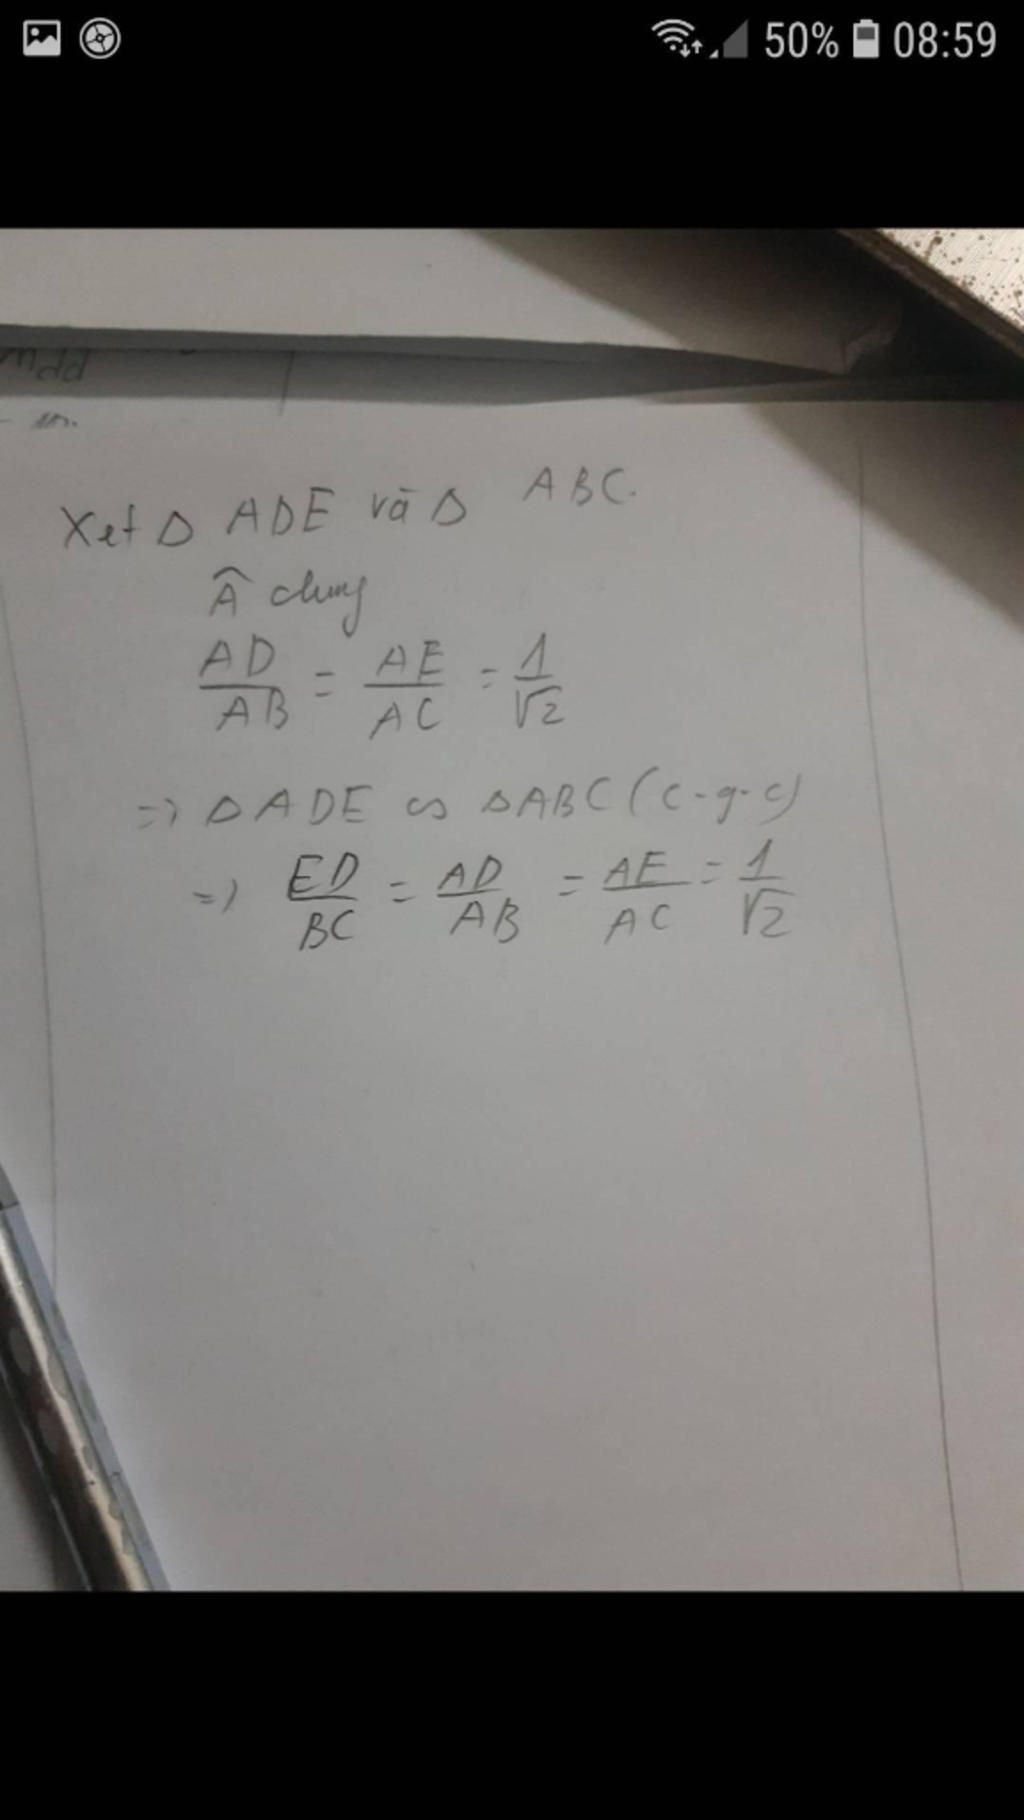 50% 08:59
mdd
Xet Δ ADE và Δ ABC.
Â chung
AD/AB = AE/AC = 1/√2
=> ΔADE ∽ ΔABC (c-g-c)
=> ED/BC = AD/AB = AE/AC = 1/√2